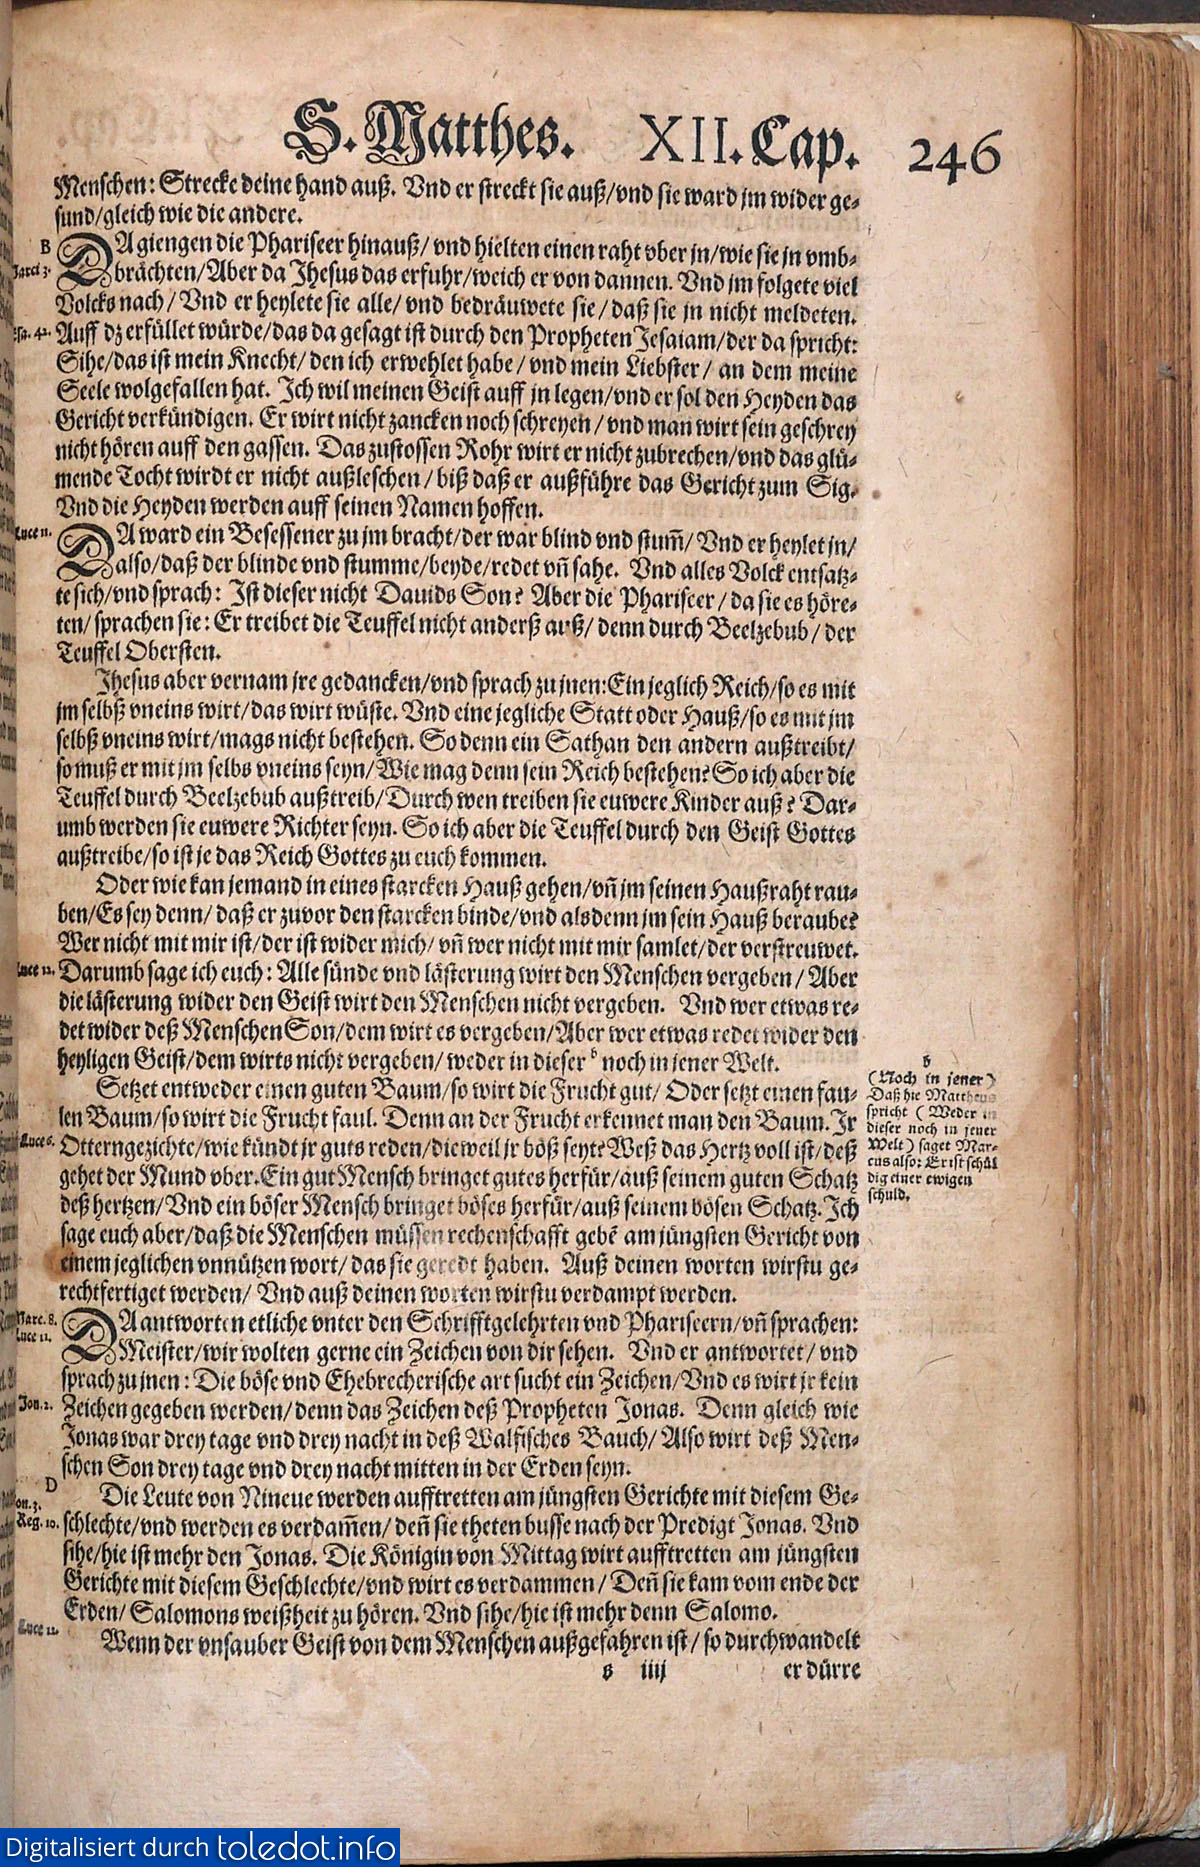 S. Matthes. XII. Cap. 246
Menschen: Strecke deine hand auß. Vnd er streckt sie auß/vnd sie ward jm wider ge-
sund/gleich wie die andere.
B
Marci 3.
DA giengen die Phariseer hinauß/ vnd hielten einen raht vber jn/wie sie jn vmb-
brächten/Aber da Jhesus das erfuhr/weich er von dannen. Vnd jm folgete viel
Volcks nach/ Vnd er heylete sie alle/ vnd bedräuwete sie/ daß sie jn nicht meldeten.
Esa. 42.
Auff dz erfüllet würde/das da gesagt ist durch den Propheten Jesaiam/der da spricht:
Sihe/das ist mein Knecht/ den ich erwehlet habe/ vnd mein Liebster/ an dem meine
Seele wolgefallen hat. Ich wil meinen Geist auff jn legen/vnd er sol den Heyden das
Gericht verkündigen. Er wirt nicht zancken noch schreyen/ vnd man wirt sein geschrey
nicht hören auff den gassen. Das zustossen Rohr wirt er nicht zubrechen/vnd das glü-
mende Tocht wirdt er nicht außleschen/ biß daß er außführe das Gericht zum Sig.
Vnd die Heyden werden auff seinen Namen hoffen.
Luce 11.
DA ward ein Besessener zu jm bracht/der war blind vnd stum̃/ Vnd er heylet jn/
also/daß der blinde vnd stumme/beyde/redet vñ sahe. Vnd alles Volck entsatz-
te sich/vnd sprach: Ist dieser nicht Dauids Son? Aber die Phariseer/ da sie es höre-
ten/ sprachen sie: Er treibet die Teuffel nicht anderß auß/ denn durch Beelzebub/ der
Teuffel Obersten.
Jhesus aber vernam jre gedancken/vnd sprach zu jnen: Ein jeglich Reich/so es mit
jm selbß vneins wirt/das wirt wüste. Vnd eine jegliche Statt oder Hauß/so es mit jm
selbß vneins wirt/mags nicht bestehen. So denn ein Sathan den andern außtreibt/
so muß er mit jm selbs vneins seyn/Wie mag denn sein Reich bestehen? So ich aber die
Teuffel durch Beelzebub außtreib/Durch wen treiben sie euwere Kinder auß? Dar-
umb werden sie euwere Richter seyn. So ich aber die Teuffel durch den Geist Gottes
außtreibe/so ist je das Reich Gottes zu euch kommen.
Oder wie kan jemand in eines starcken Hauß gehen/vñ jm seinen Haußraht rau-
ben/Es sey denn/ daß er zuvor den starcken binde/vnd alsdenn jm sein Hauß beraube?
Wer nicht mit mir ist/der ist wider mich/ vñ wer nicht mit mir samlet/der verstreuwet.
Luce 12.
Darumb sage ich euch: Alle sünde vnd lästerung wirt den Menschen vergeben/ Aber
die lästerung wider den Geist wirt den Menschen nicht vergeben. Vnd wer etwas re-
det wider deß Menschen Son/dem wirt es vergeben/Aber wer etwas redet wider den
heyligen Geist/dem wirts nicht vergeben/ weder in dieser b noch in jener Welt.
b
(Noch in jener)
Daß hie Mattheus
spricht (Weder in
dieser noch in jener
Welt) saget Mar-
cus also: Er ist schül
dig einer ewigen
schuld.
Setzet entweder einen guten Baum/so wirt die Frucht gut/ Oder setzt einen fau-
len Baum/so wirt die Frucht faul. Denn an der Frucht erkennet man den Baum. Ir
Luce 6.
Otterngezichte/wie kündt jr guts reden/dieweil jr böß seyt? Weß das Hertz voll ist/deß
gehet der Mund vber. Ein gut Mensch bringet gutes herfür/auß seinem guten Schatz
deß hertzen/Vnd ein böser Mensch bringet böses herfür/auß seinem bösen Schatz. Ich
sage euch aber/daß die Menschen müssen rechenschafft gebẽ am jüngsten Gericht von
einem jeglichen vnnützen wort/ das sie geredt haben. Auß deinen worten wirstu ge-
rechtfertiget werden/ Vnd auß deinen worten wirstu verdampt werden.
Marc. 8.
Luce 11.
DA antworten etliche vnter den Schrifftgelehrten vnd Phariseern/vñ sprachen:
Meister/wir wolten gerne ein Zeichen von dir sehen. Vnd er antwortet/ vnd
sprach zu jnen: Die böse vnd Ehebrecherische art sucht ein Zeichen/Vnd es wirt jr kein
Jon. 2.
Zeichen gegeben werden/denn das Zeichen deß Propheten Jonas. Denn gleich wie
Jonas war drey tage vnd drey nacht in deß Walfisches Bauch/ Also wirt deß Men-
schen Son drey tage vnd drey nacht mitten in der Erden seyn.
D
Jon. 3.
Reg. 10.
Die Leute von Nineue werden aufftretten am jüngsten Gerichte mit diesem Ge-
schlechte/vnd werden es verdam̃en/ deñ sie theten busse nach der Predigt Jonas. Vnd
sihe/hie ist mehr den Jonas. Die Königin von Mittag wirt aufftretten am jüngsten
Gerichte mit diesem Geschlechte/vnd wirt es verdammen/ Deñ sie kam vom ende der
Erden/ Salomons weißheit zu hören. Vnd sihe/hie ist mehr denn Salomo.
Luce 11.
Wenn der vnsauber Geist von dem Menschen außgefahren ist/ so durchwandelt
s iiij er dürre
Digitalisiert durch toledot.info